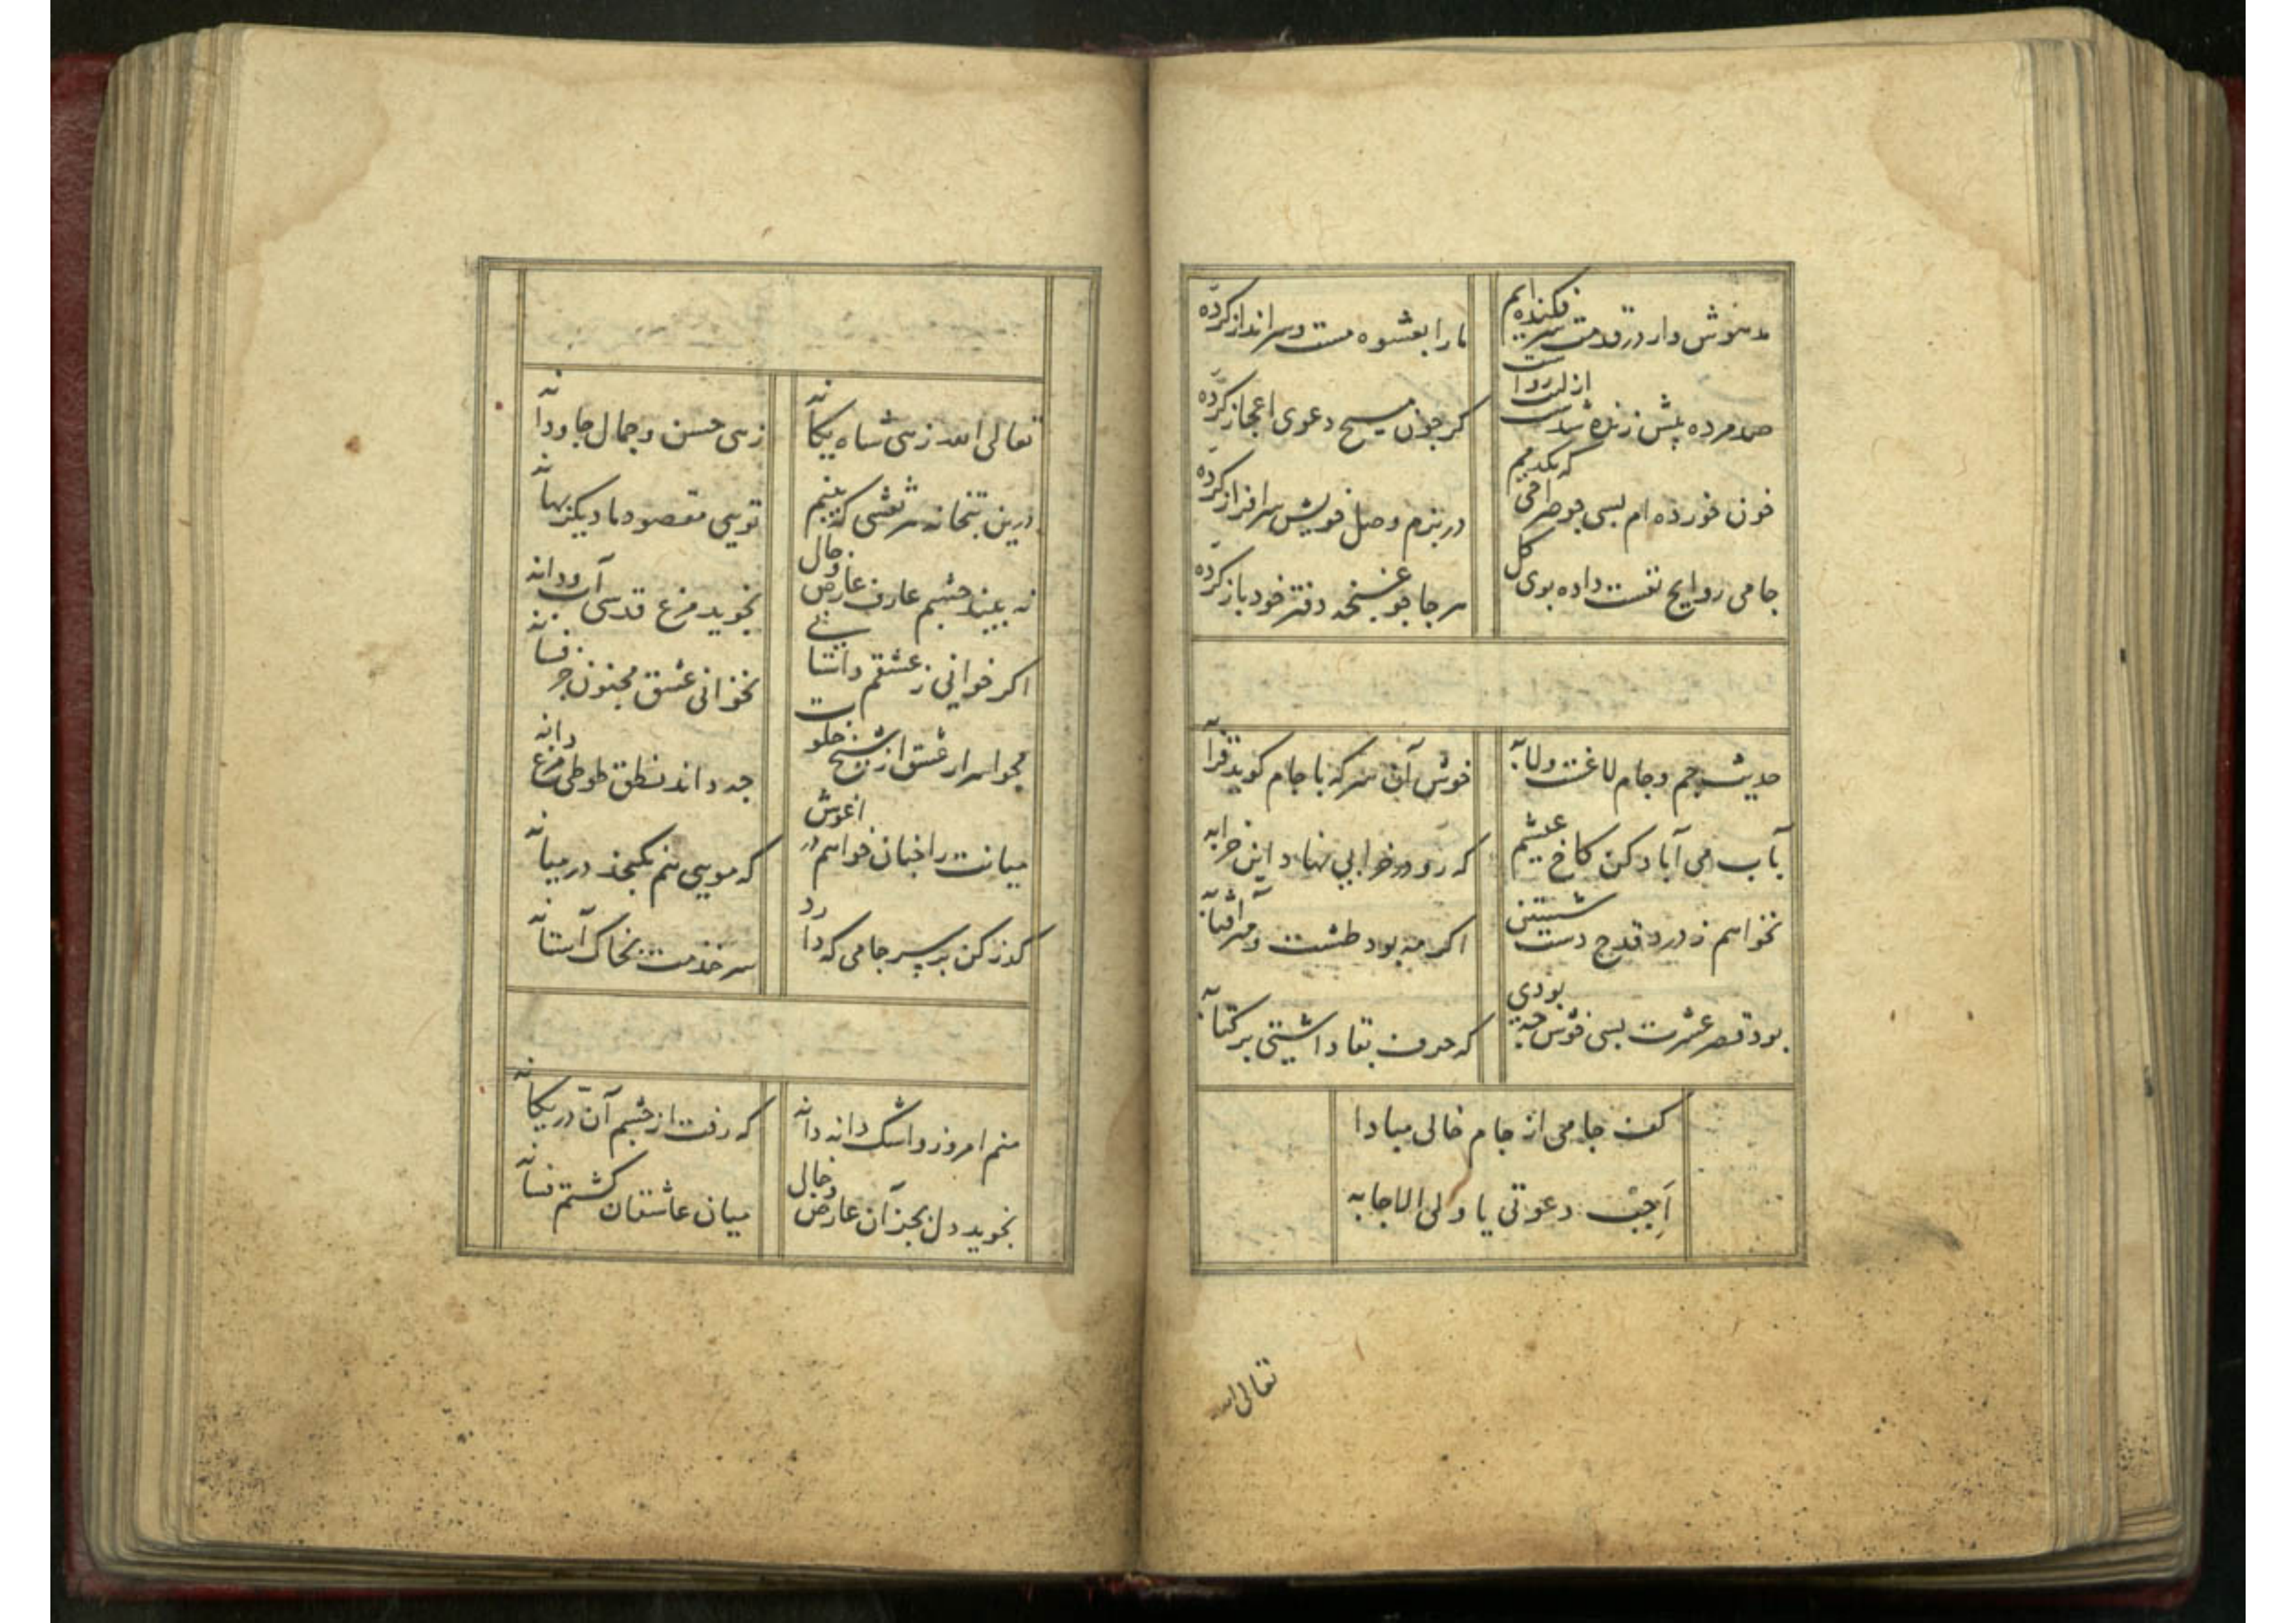 مدهوش وار در قدمت سر فکنده ایم
ما را بعشوه مست و سرانداز کرده
صد مرده پیش زنده شدست از لب روا
کر چون مسیح دعوی اعجاز کرده
خون خورده ام بسی چو صراحی که یکدیم
در بزم وصل خویش سرافراز کرده
جامی روایح نفست داده بوی کل
هر جا چو غنچه دفتر خود باز کرده
حدیث جم و جام لاغست و لابه
خوش آن سر که با جام کوید قرابه
بآب می آباد کن کاخ عیشم
که رو در خرابی نهاد این خرابه
نخواهم ز درد قدح دست شستن
اکر مه بود طشت و مهر آفتابه
بود قصر عشرت بسی خوش چه بودی
که حرف بقا داشتی بر کتابه
کف جامی از جام خالی مبادا
اَجِبْ دعوتی یا ولی الاجابه
تعالی الله
تعالی الله زهی شاه یکانه
زهی حسن و جمال جاودانه
درین بتخانه هر نقشی که بینم
تویی مقصود ما دیکر بهانه
نه بیند چشم عارف عارض و خال
نجوید مرغ قدسی آب و دانه
اکر خوانی ز عشقم داستانی
نخوانی عشق مجنون جز فسانه
مجو اسرار عشق از شیخ خلوت
چه داند نطق طوطی مرغ دانه
میانت را چنان خواهم در اغوش
که مویی هم نکنجد در میانه
کذر کن بر سر جامی که دارد
سر خدمت بخاک آستانه
منم امروز و اشک دانه دانه
که رفت از چشم آن در یکانه
نجوید دل بجز آن عارض و خال
میان عاشقان کشتم فسانه